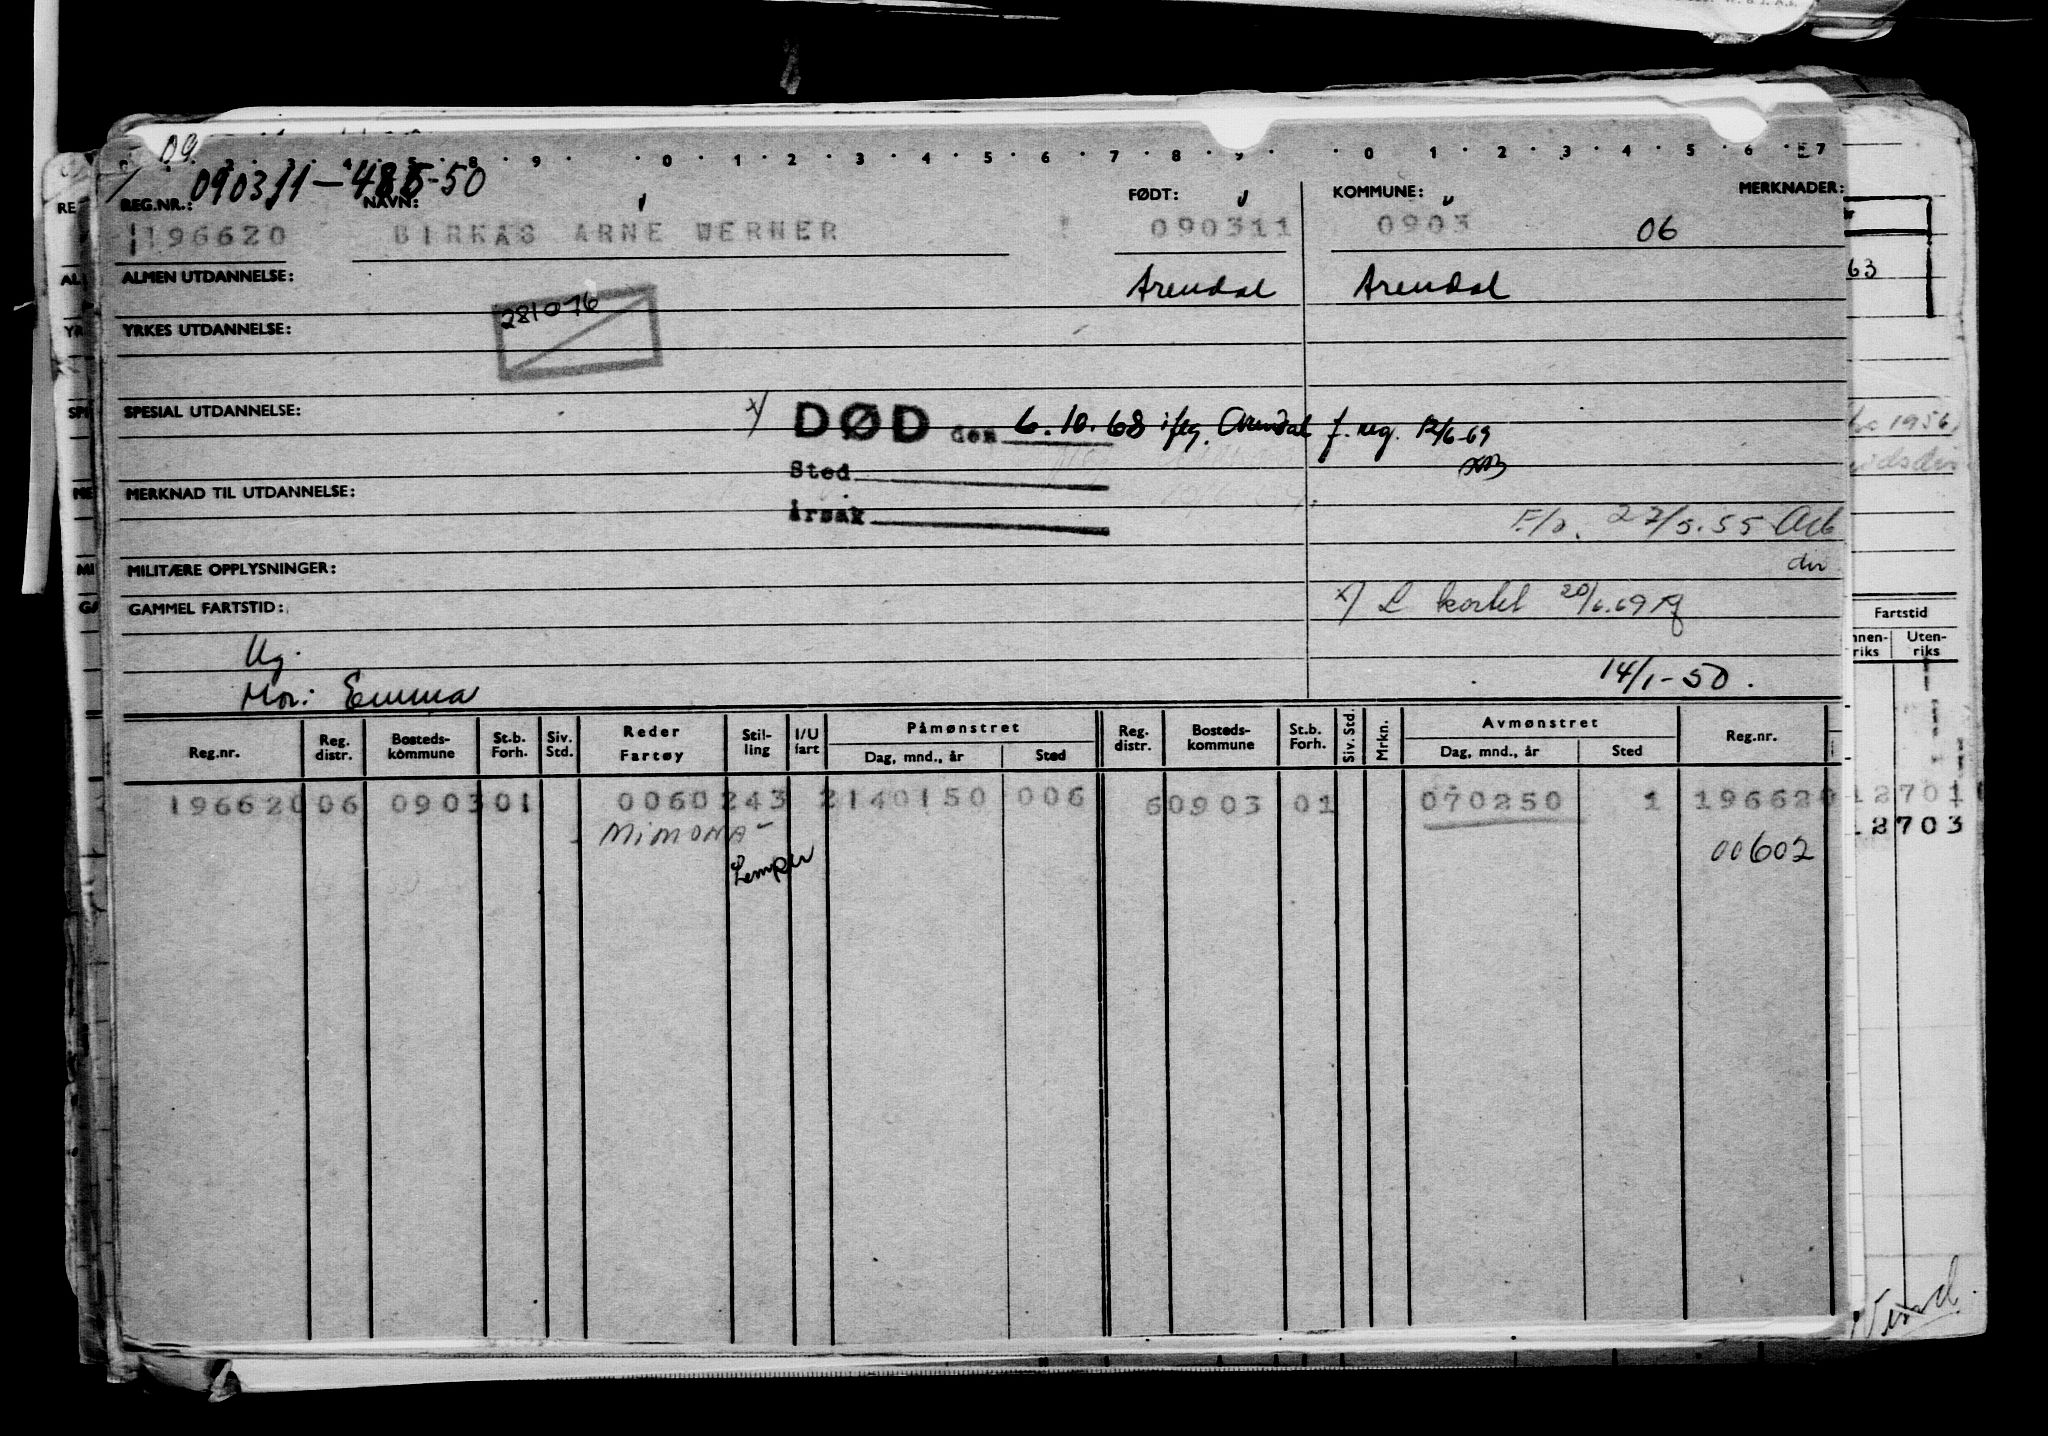 09
0 3 1 1 - 4 8 5 - 50
090311-485-50
REG.NR.: NAVN: FØDT: KOMMUNE: MERKNADER:
196620 BIRKAS ARNE WERNER 090311 0903 06
ALMEN UTDANNELSE: Arendal Arendal
281076
YRKES UTDANNELSE:
SPESIAL UTDANNELSE: x/ DØD den 6.10.68 ifg. Arendal f. reg. 12/6-69
Sted
MERKNAD TIL UTDANNELSE:
Årsak
F/o. 27/5.55 Arb
dir
MILITÆRE OPPLYSNINGER:
x/ L kortet 20/6.69
GAMMEL FARTSTID:
Ug.
Mor: Emma 14/1-50.
Reg.nr. Reg. distr. Bosteds-kommune St.b. Forh. Siv. Std. Reder Fartøy Stil-ling I/U fart Påmønstret Dag, mnd., år Sted Reg. distr. Bosteds-kommune St.b. Forh. Siv. Std. Mrkn. Avmønstret Dag, mnd., år Sted Reg.nr.
196620 06 0903 01 0060 243 2 140150 006 6 0903 01 070250 1 196620
MIMONA
Lemper
00602
63
1956
Fartstid
Innen-riks Uten-riks
12701
12703
Vend.